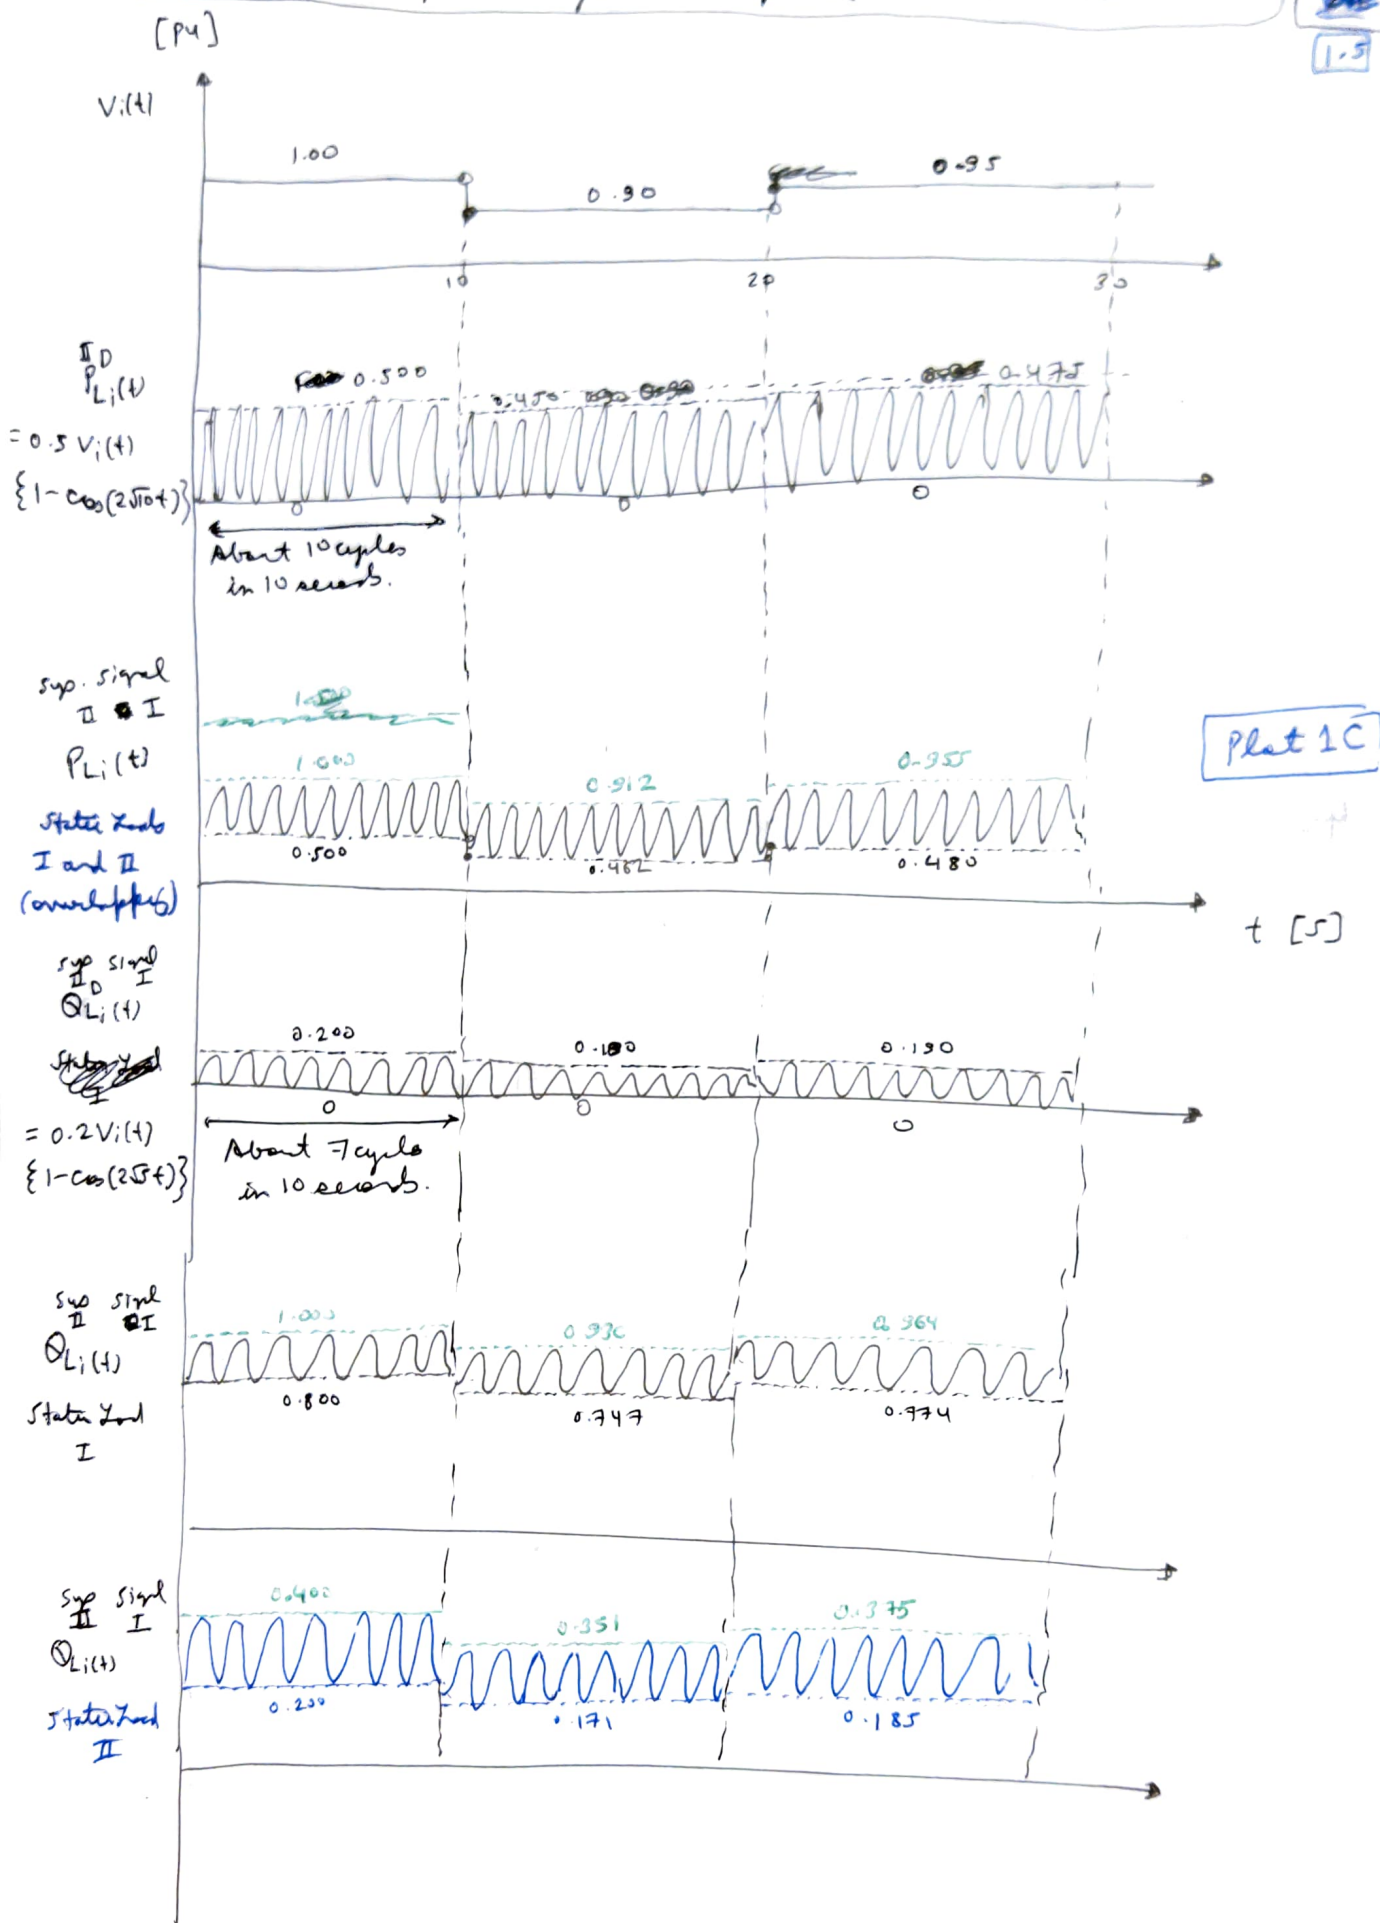 [pu]
1.5
Vi(t)
1.00
0.90
0.95
10
20
30
II D
PLi(t)
= 0.5 Vi(t)
{1-cos(2√10t)}
0.500
0.450
0.475
0
0
0
About 10 cycles
in 10 seconds.
Sup. signal
II I
PLi(t)
Static Loads
I and II
(overlapping)
1.000
0.912
0.955
0.500
0.462
0.480
Plot 1C
t [s]
Sup signal
II D I
QLi(t)
= 0.2Vi(t)
{1-cos(2√5t)}
0.200
0.190
0
0
0
About 7 cycles
in 10 seconds.
Sup signal
II I
QLi(t)
Static Load
I
1.000
0.930
0.964
0.800
0.747
0.774
Sup signal
II I
QLi(t)
Static Load
II
0.400
0.351
0.375
0.200
0.171
0.185